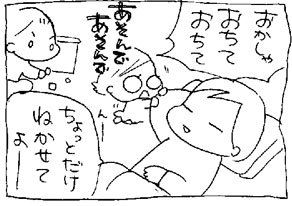 おかしゃ
おちて
おちて
あそんで
あそんで
ん〜
ちょっとだけ
ねかせて
よー